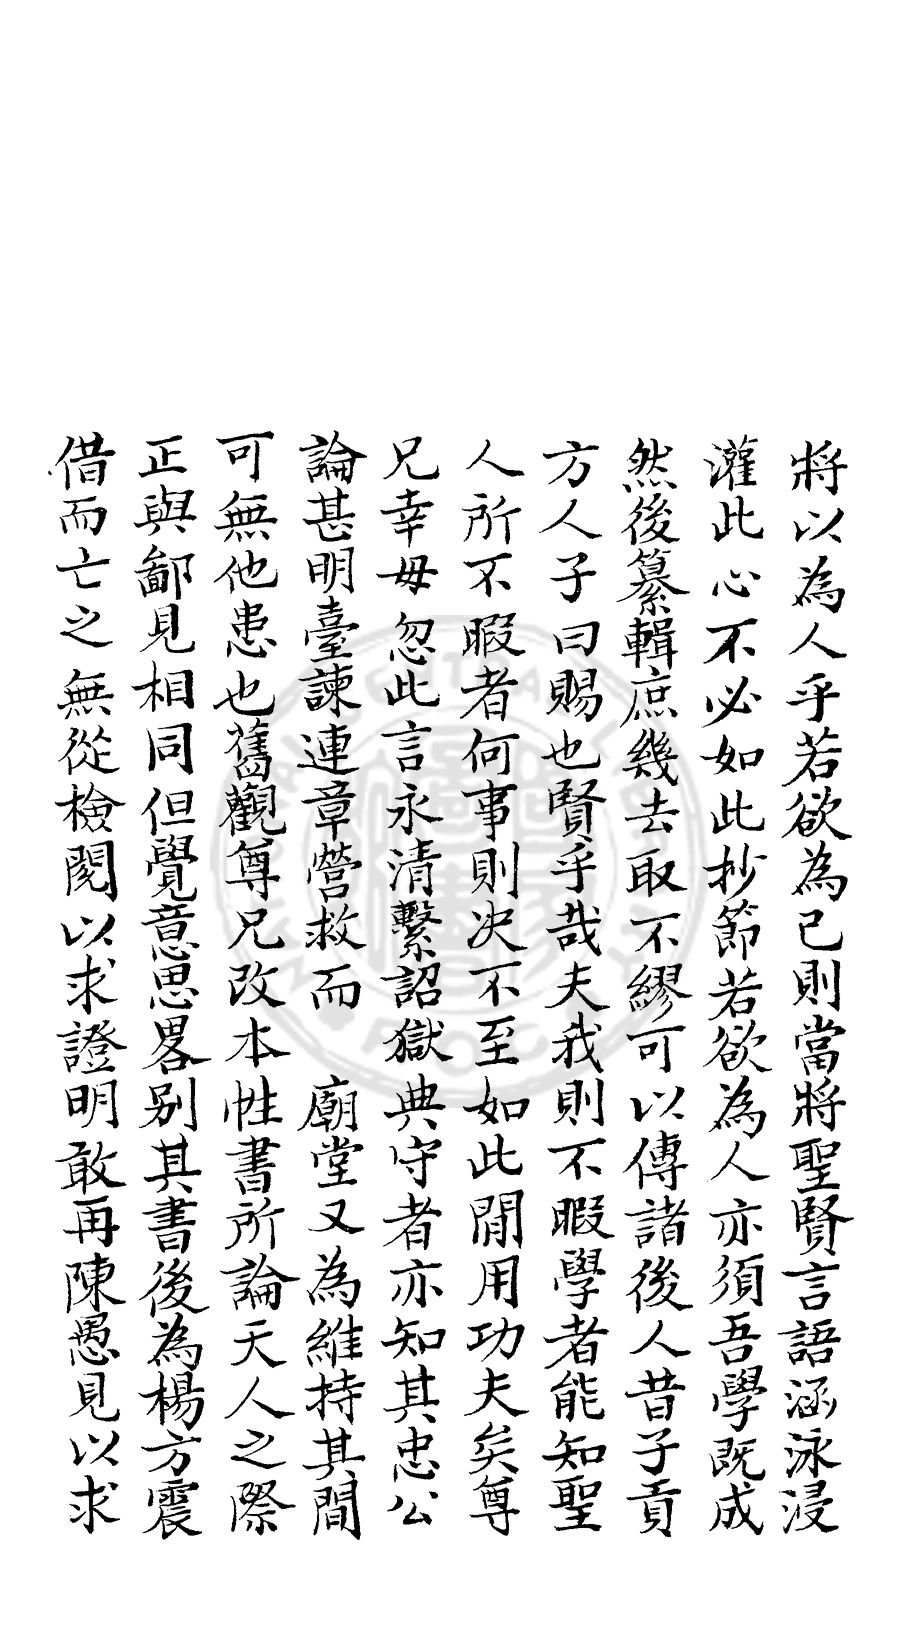 將以為人乎若欲為已則當將聖賢言語涵泳浸
灌此心不必如此抄節若欲為人亦須吾學既成
然後纂輯庶幾去取不繆可以傳諸後人昔子貢
方人子曰賜也賢乎哉夫我則不暇學者能知聖
人所不暇者何事則决不至如此閒用功夫矣尊
兄幸毋忽此言永清繫詔獄典守者亦知其忠公
論甚明臺諫連章營救而廟堂又為維持其間
可無他患也舊觀尊兄改本性書所論天人之際
正與鄙見相同但覺意思畧别其書後為楊方震
借而亡之無從檢閱以求證明敢再陳愚見以求